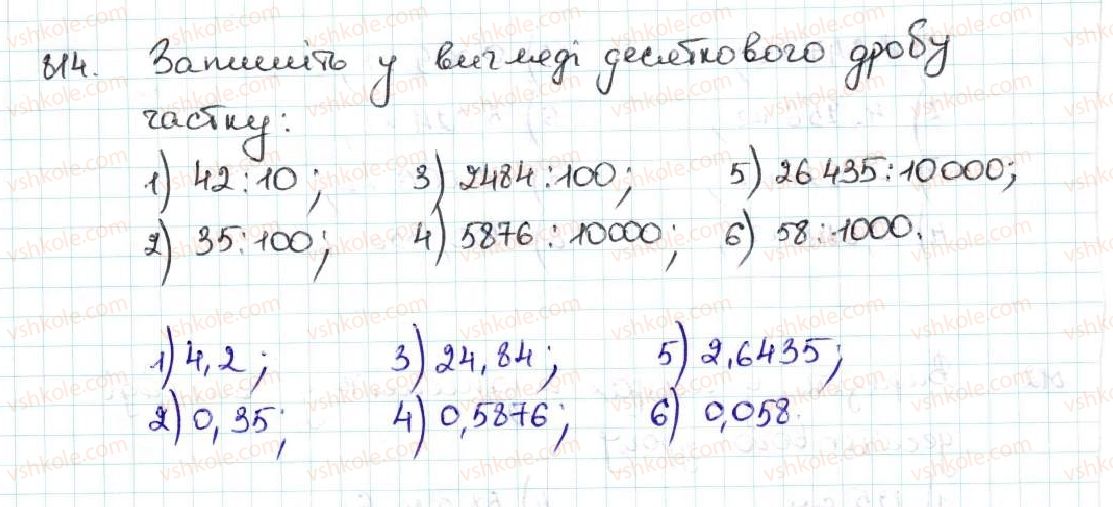 814. Запишіть у вигляді десяткового дробу
частку:
1) 42:10; 3) 2484:100; 5) 26 435:10000;
2) 35:100; 4) 5876:10000; 6) 58:1000.
1) 4,2; 3) 24,84; 5) 2,6435;
2) 0,35; 4) 0,5876; 6) 0,058